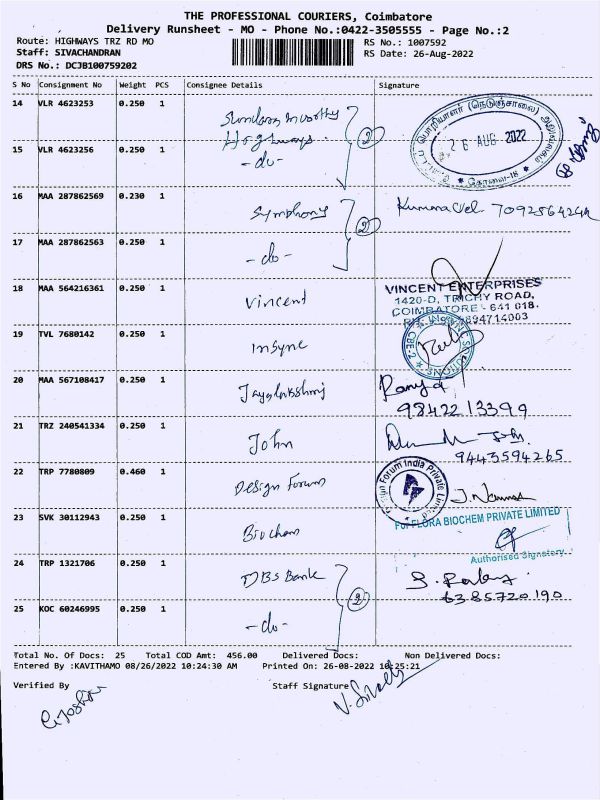 THE PROFESSIONAL COURIERS, Coimbatore
Delivery Runsheet - MO - Phone No.:0422-3505555 - Page No.:2
Route: HIGHWAYS TRZ RD MO
RS No.: 1007592
Staff: SIVACHANDRAN
RS Date: 26-Aug-2022
DRS No.: DCJB100759202
S No Consignment No Weight PCS Consignee Details Signature
14 VLR 4623253 0.250 1
Highways
2
26 AUG 2022
15 VLR 4623256 0.250 1 -do-
16 MAA 287862569 0.230 1 Symphony 2
17 MAA 287862563 0.250 1 -do-
18 MAA 564216361 0.250 1 Vincent
VINCENT ENTERPRISES
1420-D, TRICHY ROAD,
COIMBATORE - 641 018.
9894714003
19 TVL 7680142 0.250 1 Insync
20 MAA 567108417 0.250 1 Jayalakshmi Ramya
9842213399
21 TRZ 240541334 0.250 1 John
9443594265
22 TRP 7780809 0.460 1 Design Forum
Design Forum India Private Limited
23 SVK 30112943 0.250 1 Biochem
For FLORA BIOCHEM PRIVATE LIMITED
Authorised Signatory
24 TRP 1321706 0.250 1 DBS Bank 2
6385720190
25 KOC 60246995 0.250 1 -do-
Total No. Of Docs: 25 Total COD Amt: 456.00 Delivered Docs: Non Delivered Docs:
Entered By :KAVITHAMO 08/26/2022 10:24:30 AM Printed On: 26-08-2022 10:25:21
Verified By Staff Signature